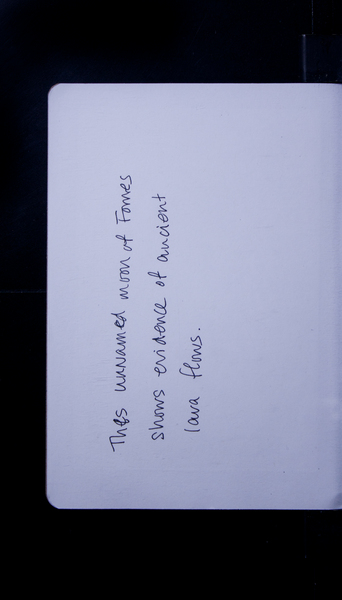 This unnamed moon of Fornes
shows evidence of ancient
lava flows.